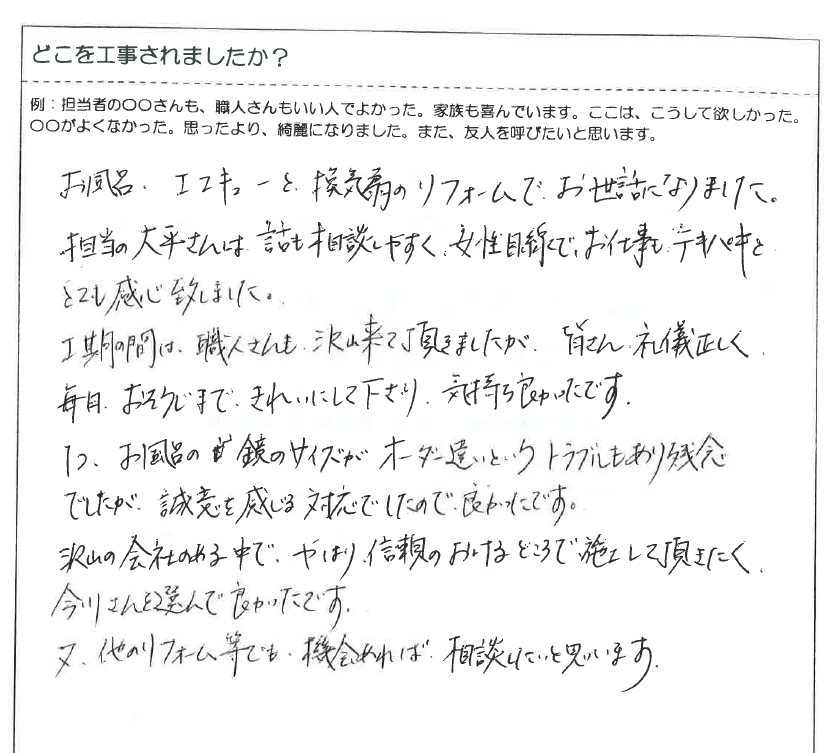 どこを工事されましたか？
例：担当者の〇〇さんも、職人さんもいい人でよかった。家族も喜んでいます。ここは、こうして欲しかった。
〇〇がよくなかった。思ったより、綺麗になりました。また、友人を呼びたいと思います。
お風呂、エコキューと、換気扇のリフォームで、お世話になりました。
担当の大平さんは、話も相談しやすく、女性目線で、お仕事も、テキパキと
とても感じ致しました。
工期の間は、職人さんも、沢山来て頂きましたが、皆さん、礼儀正しく、
毎日、おそうじまで、きれいにして下さり、気持ち良かったです。
1つ、お風呂の鏡のサイズが、オーダー違いというトラブルもあり残念
でしたが、誠意を感じる対応でしたので、良かったです。
沢山の会社のある中で、やはり、信頼のおけるところで施工して頂きたく、
今川さんを選んで良かったです。
又、他のリフォーム等でも、機会あれば、相談したいと思います。